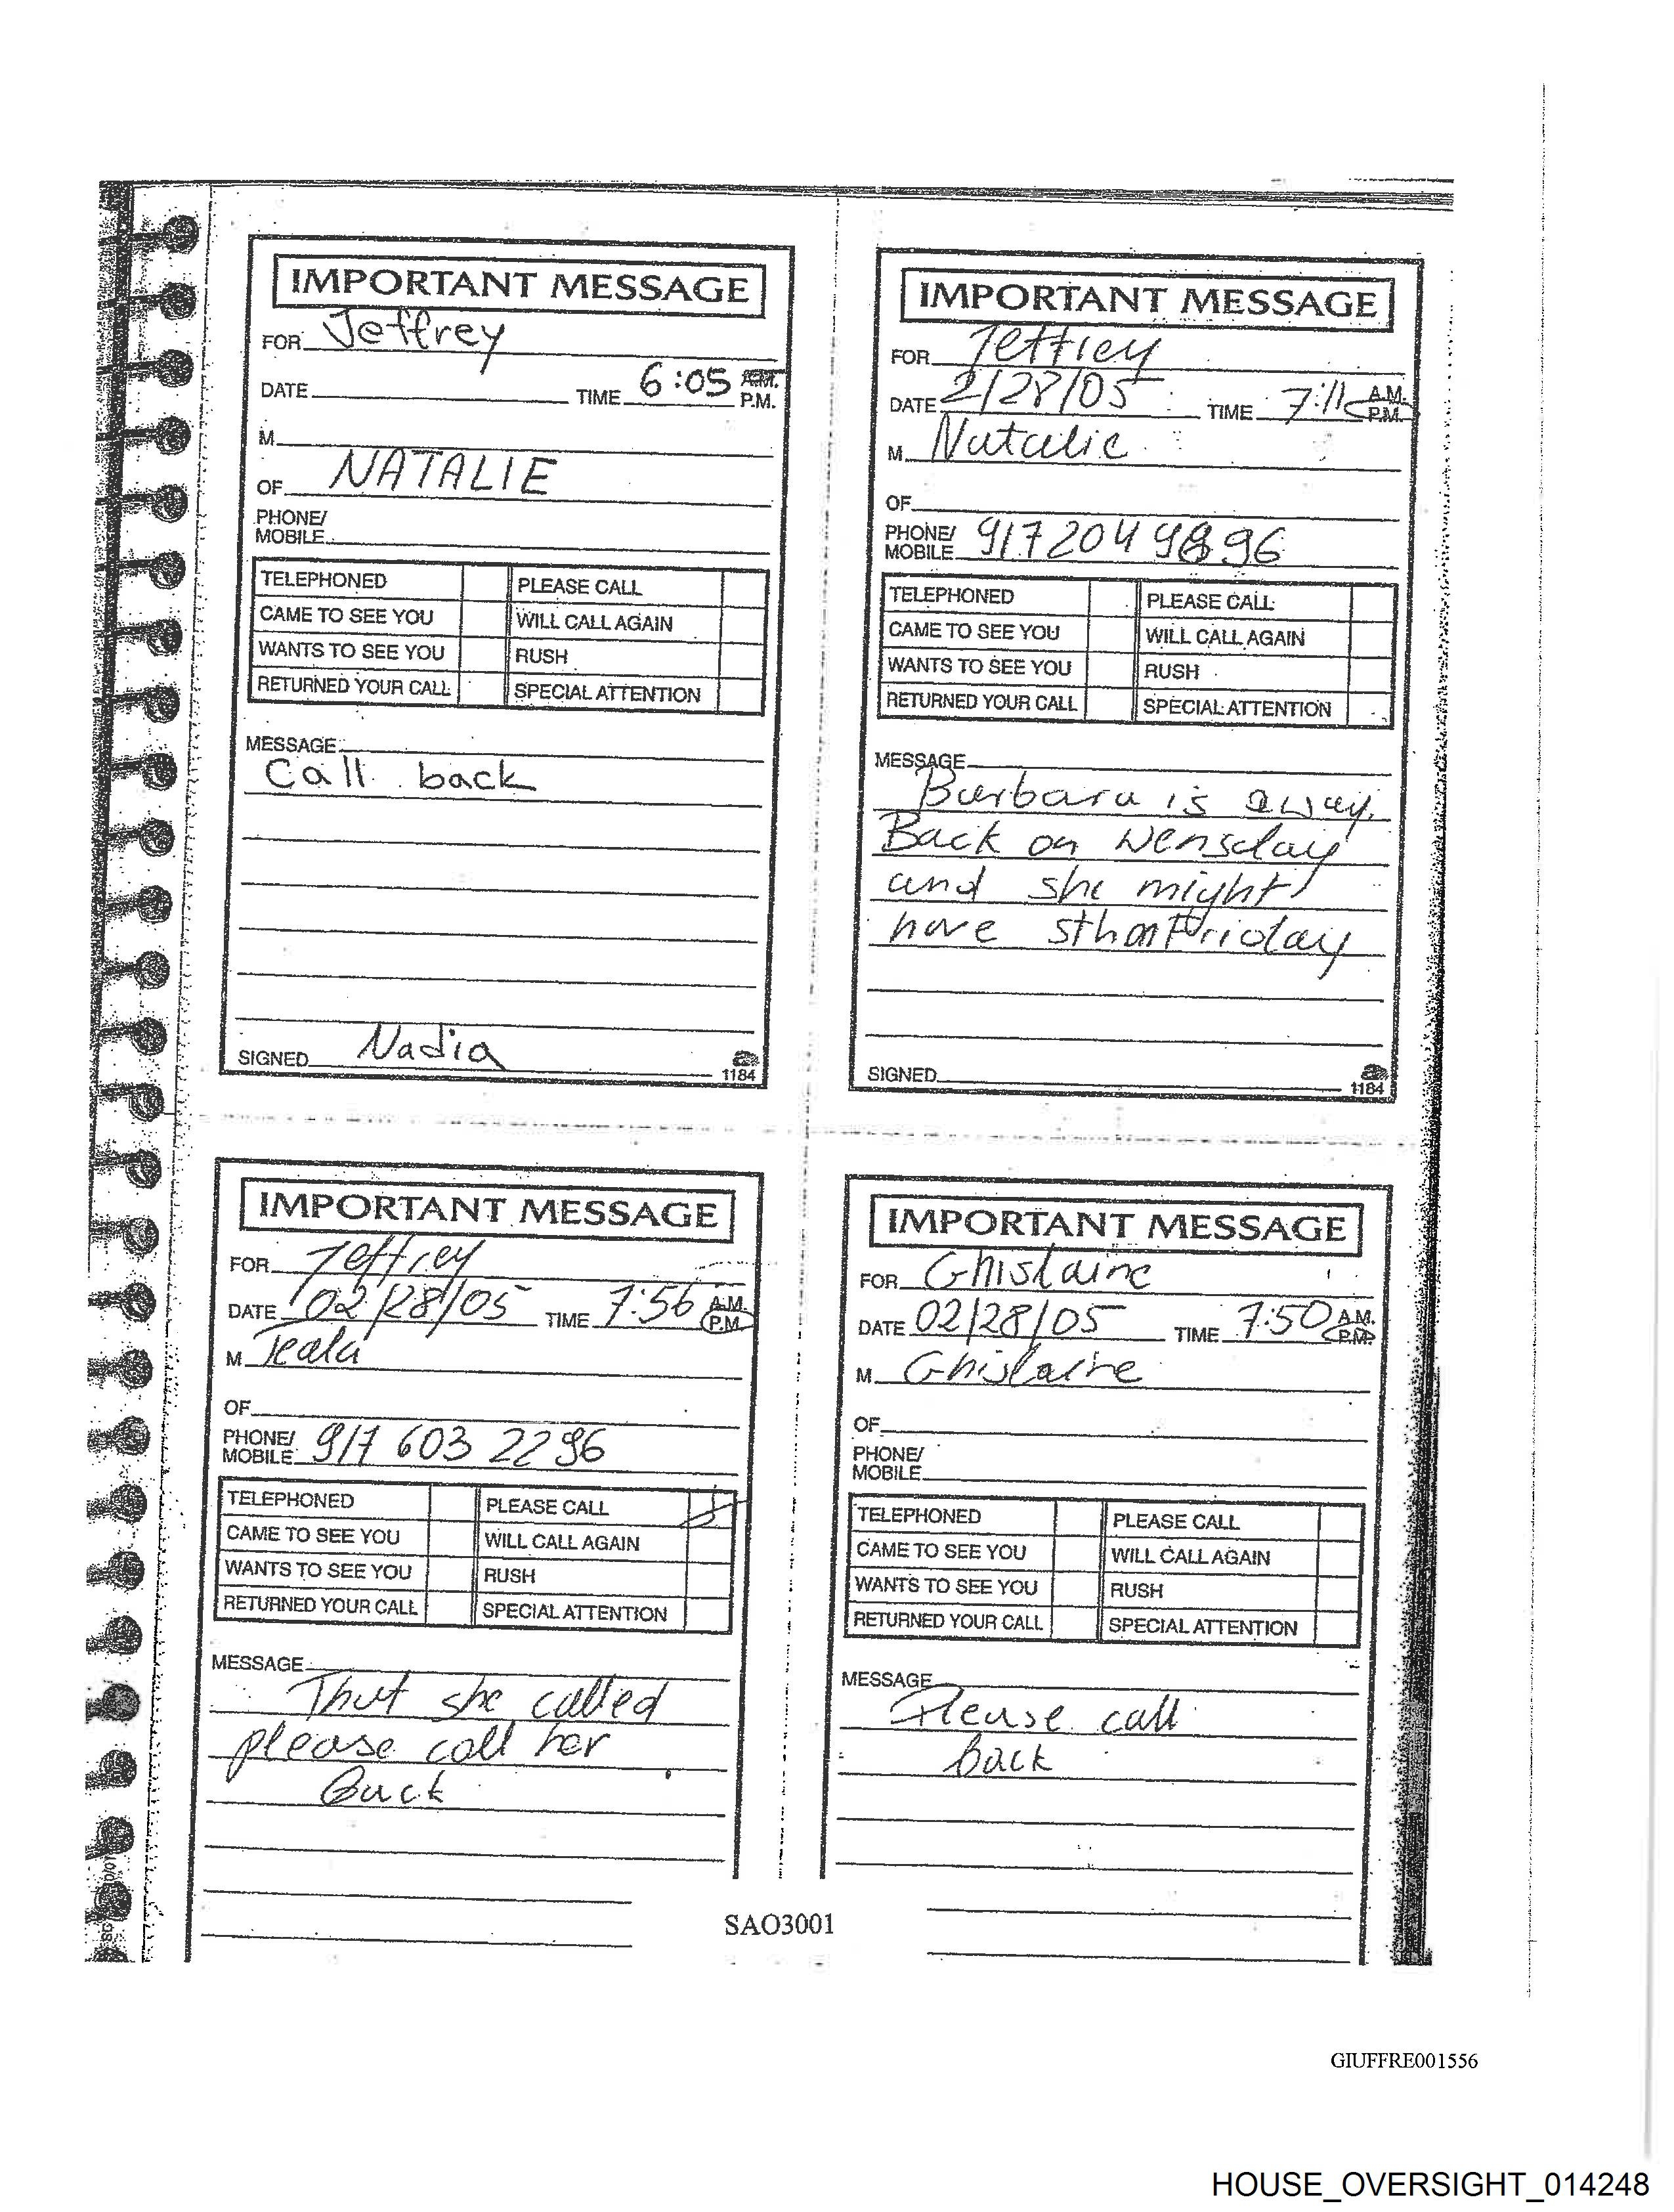 IMPORTANT MESSAGE
FOR Jeffrey
DATE TIME 6:05 A.M.
P.M.
M
OF NATALIE
PHONE/
MOBILE
TELEPHONED PLEASE CALL
CAME TO SEE YOU WILL CALL AGAIN
WANTS TO SEE YOU RUSH
RETURNED YOUR CALL SPECIAL ATTENTION
MESSAGE
Call back
SIGNED Nadia
1184
IMPORTANT MESSAGE
FOR Jeffrey
DATE 2/28/05 TIME 7:11 A.M.
P.M.
M Natalie
OF
PHONE/
MOBILE 917 204 9896
TELEPHONED PLEASE CALL
CAME TO SEE YOU WILL CALL AGAIN
WANTS TO SEE YOU RUSH
RETURNED YOUR CALL SPECIAL ATTENTION
MESSAGE
Barbara is away.
Back on Wensday
and she might
have sth on Friday
SIGNED
1184
IMPORTANT MESSAGE
FOR Jeffrey
DATE 02/28/05 TIME 7:56 A.M.
P.M.
M Teala
OF
PHONE/
MOBILE 917 603 2296
TELEPHONED PLEASE CALL
CAME TO SEE YOU WILL CALL AGAIN
WANTS TO SEE YOU RUSH
RETURNED YOUR CALL SPECIAL ATTENTION
MESSAGE
That she called
please call her
back
IMPORTANT MESSAGE
FOR Ghislaine
DATE 02/28/05 TIME 7:50 A.M.
P.M.
M Ghislaine
OF
PHONE/
MOBILE
TELEPHONED PLEASE CALL
CAME TO SEE YOU WILL CALL AGAIN
WANTS TO SEE YOU RUSH
RETURNED YOUR CALL SPECIAL ATTENTION
MESSAGE
Please call
back
SAO3001
GIUFFRE001556
HOUSE_OVERSIGHT_014248